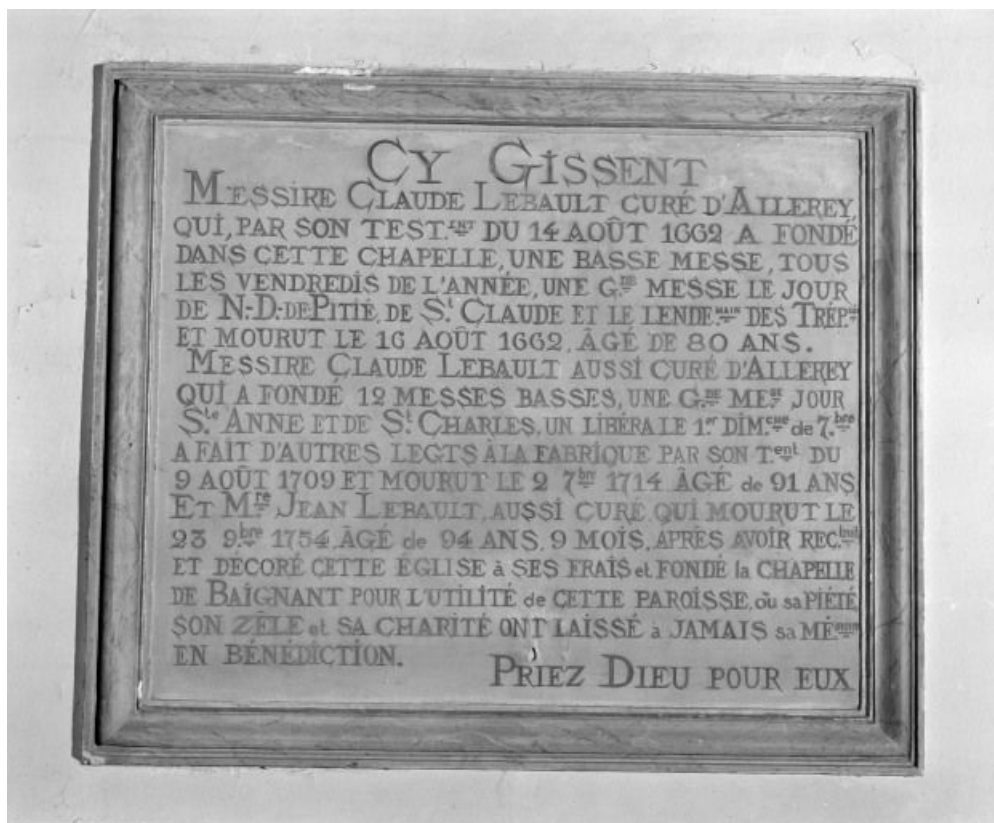 CY GISSENT
MESSIRE CLAUDE LEBAULT CURÉ D'ALLEREY,
QUI, PAR SON TEST.ENT DU 14 AOÛT 1662 A FONDÉ
DANS CETTE CHAPELLE, UNE BASSE MESSE, TOUS
LES VENDREDIS DE L'ANNÉE, UNE G.DE MESSE LE JOUR
DE N.-D.-DE PITIÉ, DE St. CLAUDE ET LE LENDE.MAIN DES TRÉP.és
ET MOURUT LE 16 AOÛT 1662, ÂGÉ DE 80 ANS.
MESSIRE CLAUDE LEBAULT AUSSI CURÉ D'ALLEREY
QUI A FONDÉ 12 MESSES BASSES, UNE G.DE ME.SE JOUR
Ste ANNE ET DE St. CHARLES, UN LIBÉRA LE 1.er DIM.che de 7.bre
A FAIT D'AUTRES LEGTS À LA FABRIQUE PAR SON T.ent DU
9 AOÛT 1709 ET MOURUT LE 2 7bre 1714 ÂGÉ de 91 ANS
ET M.re JEAN LEBAULT, AUSSI CURÉ QUI MOURUT LE
23 9.bre 1754, ÂGÉ de 94 ANS, 9 MOIS, APRÈS AVOIR REC.huit
ET DÉCORÉ CETTE ÉGLISE à SES FRAIS et FONDÉ la CHAPELLE
DE BAIGNANT POUR L'UTILITÉ de CETTE PAROISSE, où sa PIÉTÉ
SON ZÈLE et SA CHARITÉ ONT LAISSÉ à JAMAIS sa MÉ.moire
EN BÉNÉDICTION.
PRIEZ DIEU POUR EUX